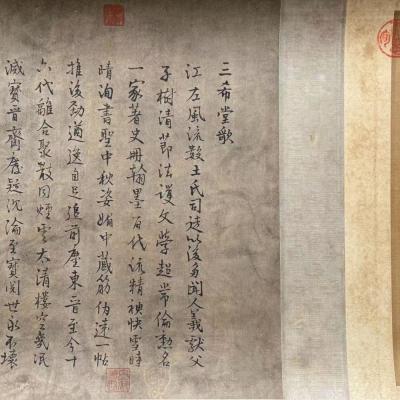 三希堂歌
江左風流數王氏司徒以後多聞人羲獻父
子樹清節法護文學超常倫勲名
一家著史冊翰墨百代流精神快雪時
晴洵書聖中秋姿媚中藏筋伯遠一帖
推後勁遒逸自足追前塵東晉至今十
六代離合聚散同煙雲太清樓空幾泯
滅寶晉齋廢疑沈淪至寶閱世永不壞